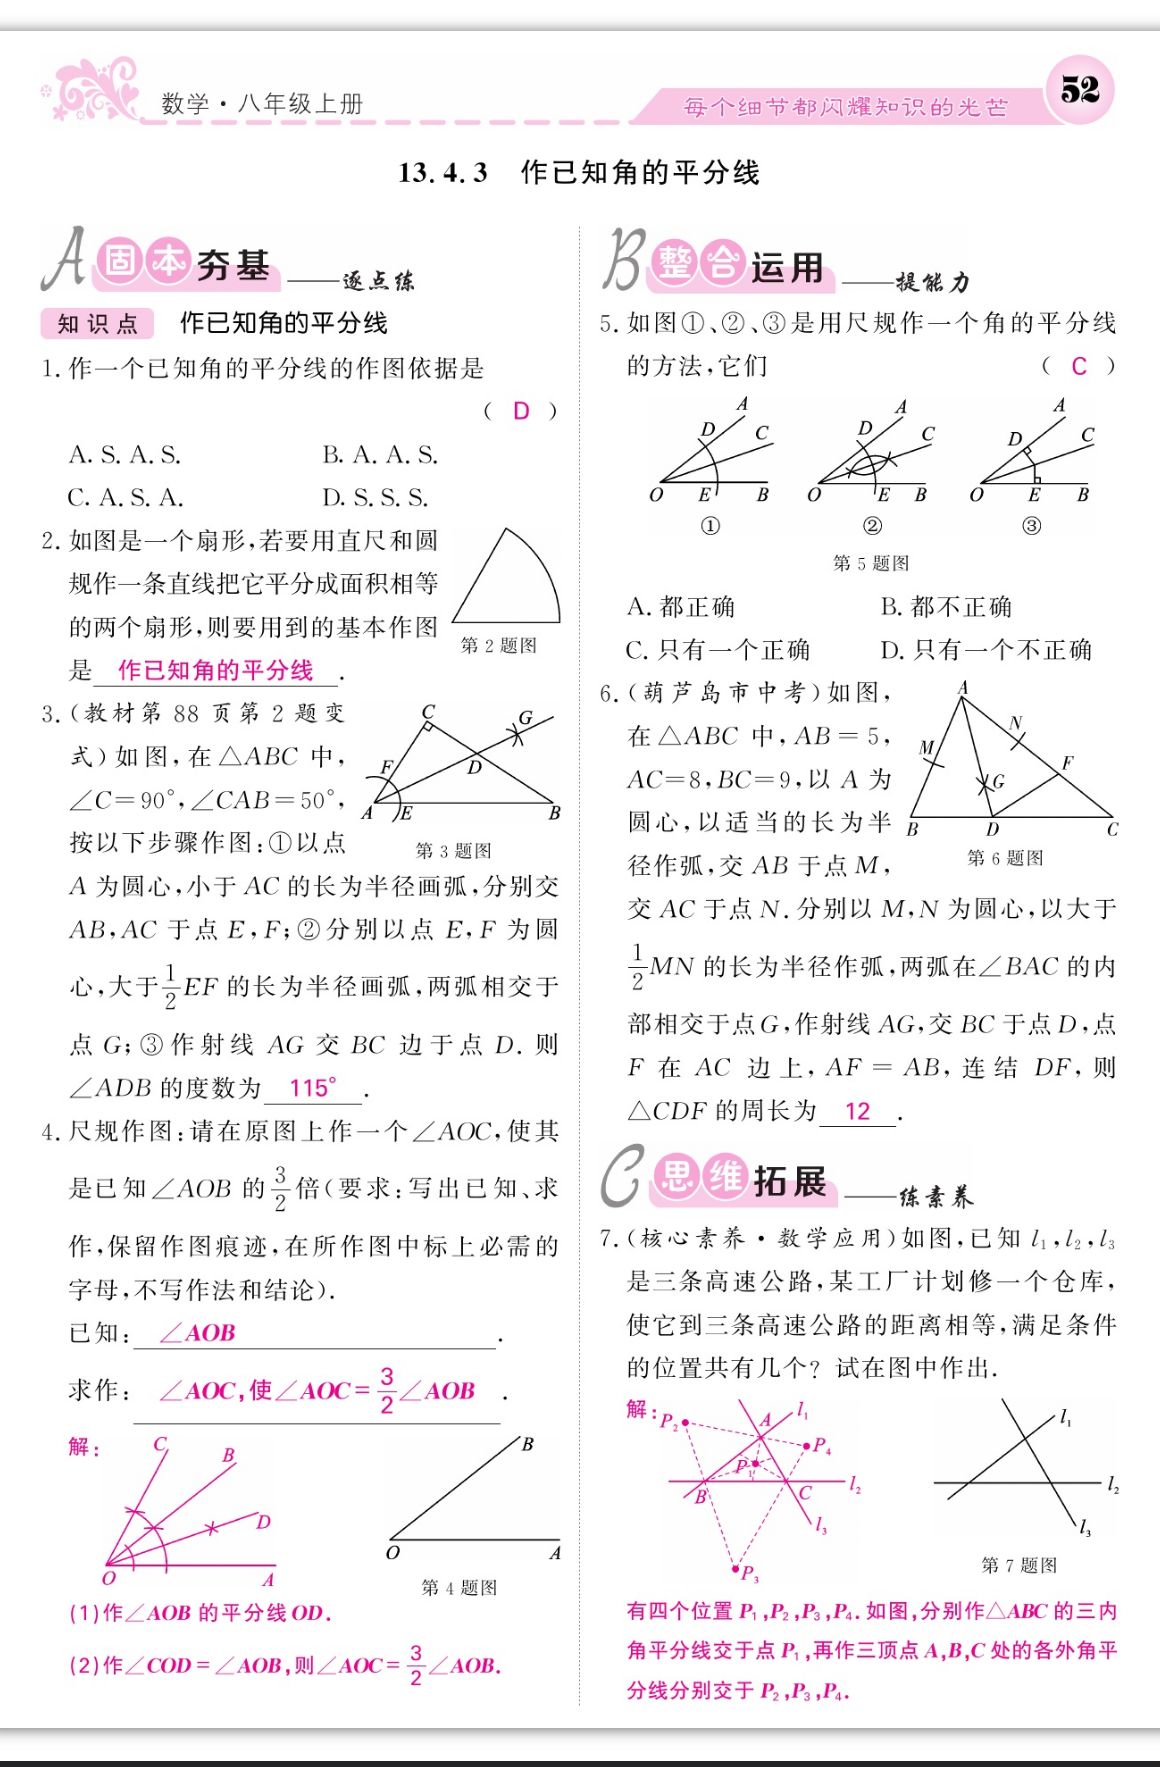 数学·八年级上册
每个细节都闪耀知识的光芒
52
13.4.3 作已知角的平分线
A 固本夯基 ——逐点练
知识点 作已知角的平分线
1. 作一个已知角的平分线的作图依据是
( D )
A. S. A. S. B. A. A. S.
C. A. S. A. D. S. S. S.
2. 如图是一个扇形,若要用直尺和圆
规作一条直线把它平分成面积相等
的两个扇形,则要用到的基本作图
第 2 题图
是 作已知角的平分线 .
3. (教材第 88 页第 2 题变
式)如图,在△ABC 中,
∠C=90°,∠CAB=50°,
按以下步骤作图:①以点
C G F D A E B
第 3 题图
A 为圆心,小于 AC 的长为半径画弧,分别交
AB,AC 于点 E,F;②分别以点 E,F 为圆
心,大于1/2EF 的长为半径画弧,两弧相交于
点 G;③作射线 AG 交 BC 边于点 D. 则
∠ADB 的度数为 115° .
4. 尺规作图:请在原图上作一个∠AOC,使其
是已知∠AOB 的3/2倍(要求:写出已知、求
作,保留作图痕迹,在所作图中标上必需的
字母,不写作法和结论).
已知: ∠AOB .
求作: ∠AOC,使∠AOC=3/2∠AOB .
解:
C B D O A
B O A
第 4 题图
(1)作∠AOB 的平分线OD.
(2)作∠COD=∠AOB,则∠AOC=3/2∠AOB.
B 整合运用 ——提能力
5. 如图①、②、③是用尺规作一个角的平分线
的方法,它们 ( C )
A D C O E B
A D C O E B
A D C O E B
① ② ③
第 5 题图
A. 都正确 B. 都不正确
C. 只有一个正确 D. 只有一个不正确
6. (葫芦岛市中考)如图,
在△ABC 中,AB=5,
AC=8,BC=9,以 A 为
圆心,以适当的长为半
径作弧,交 AB 于点 M,
A N M F G B D C
第 6 题图
交 AC 于点 N. 分别以 M,N 为圆心,以大于
1/2MN 的长为半径作弧,两弧在∠BAC 的内
部相交于点G,作射线 AG,交 BC 于点 D,点
F 在 AC 边上,AF=AB,连结 DF,则
△CDF 的周长为 12 .
C 思维拓展 ——练素养
7. (核心素养·数学应用)如图,已知 l₁,l₂,l₃
是三条高速公路,某工厂计划修一个仓库,
使它到三条高速公路的距离相等,满足条件
的位置共有几个? 试在图中作出.
解:
P₂ A l₁ P₄ P₁ l₂ B C l₃ P₃
l₁ l₂ l₃
第 7 题图
有四个位置 P₁,P₂,P₃,P₄. 如图,分别作△ABC 的三内
角平分线交于点 P₁,再作三顶点 A,B,C 处的各外角平
分线分别交于 P₂,P₃,P₄.